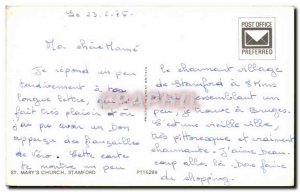 Le 23.6.75
POST OFFICE
PREFERRED
Ma chère Mamé
Je répond un peu
tardivement à ta
longue lettre, qui m'a
fait très plaisir et où
j'ai pu avoir un bon
aperçu des fiançailles
de Véro. Cette carte
montre un peu
le charmant village
de Stamford à 8 Kms
ressemblant un
peu, je trouve à Bruges.
et une vieille ville,
très pittoresque et vraiment
charmante. J'aime beau
coup aller là-bas faire
du shopping.
ST. MARY'S CHURCH, STAMFORD
PT16286